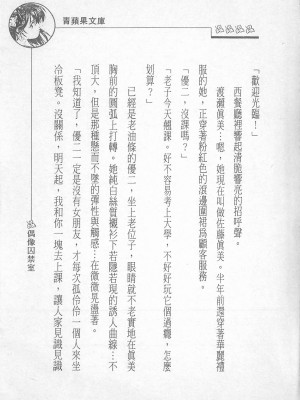 青蘋果文庫
「歡迎光臨！」
西餐廳裡響起清脆響亮的招呼聲。
渡瀨真美：嗯，她現在叫做佐藤真美。半年前還穿著華麗禮
服的她，正穿著粉紅色的滾邊圍裙為顧客服務。
「優二，沒課嗎？」
「老子今天翹課。好不容易考上大學，不好好玩它個過癮，怎麼
划算？」
已經是老油條的優二，坐上老位子，眼睛就不老實地在真美
胸前的圓弧上打轉。她純白絲質襯衫下若隱若現的誘人曲線…不
頂大，但是那種懸而不墜的彈性與觸感…在微微見盪著。
「我知道了，優二一定是沒有女朋友，才每次孤伶伶一個人來坐
冷板凳。沒關係，明天起，我和你一塊去上課，讓人家見識見識
偶像囚禁室